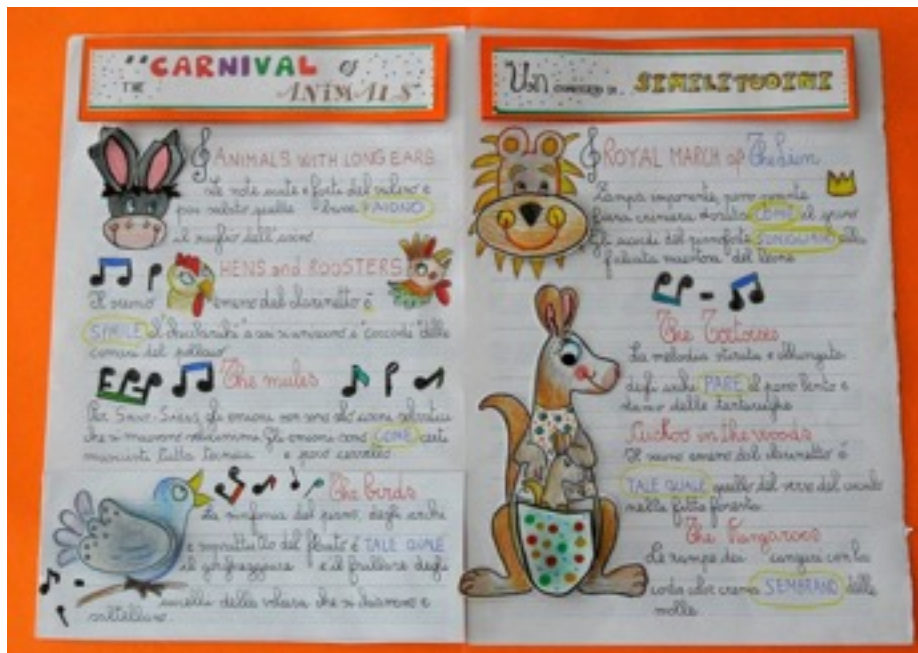 "CARNIVAL of
THE ANIMALS"
ANIMALS WITH LONG EARS
Le note acute e forti del violino e
poi subito quelle basse PAIONO
il raglio dell'asino.
HENS and ROOSTERS
Il suono emesso dal clarinetto è
SIMILE al "chicchirichì" a cui si uniscono i "coccodè" delle
comari del pollaio.
The mules
Per Saint-Saëns gli emioni non sono che asini selvatici
che si muovono velocissimi. Gli emioni sono COME certi
musicisti tutta tecnica e poco cervello.
The birds
La sinfonia del piano, degli archi
e soprattutto del flauto è TALE QUALE
il gorgheggiare e il frullare degli
uccelli della voliera che si chiamano e
saltellano.
Un concerto di... SIMILITUDINI
ROYAL MARCH of The Lion
Zampa imponente, passo pesante
fiera criniera dorata COME il grano
Gli accordi del pianoforte SOMIGLIANO alla
falcata maestosa del leone
The Tortoises
La melodia stirata e allungata
degli archi PARE il passo lento e
delle tartarughe
Cuckoo in the woods
Il suono emesso dal clarinetto è
TALE QUALE quello del verso del cuculo
nella fitta foresta.
The Kangaroos
Le zampe dei canguri con la
coda color crema SEMBRANO delle
molle.